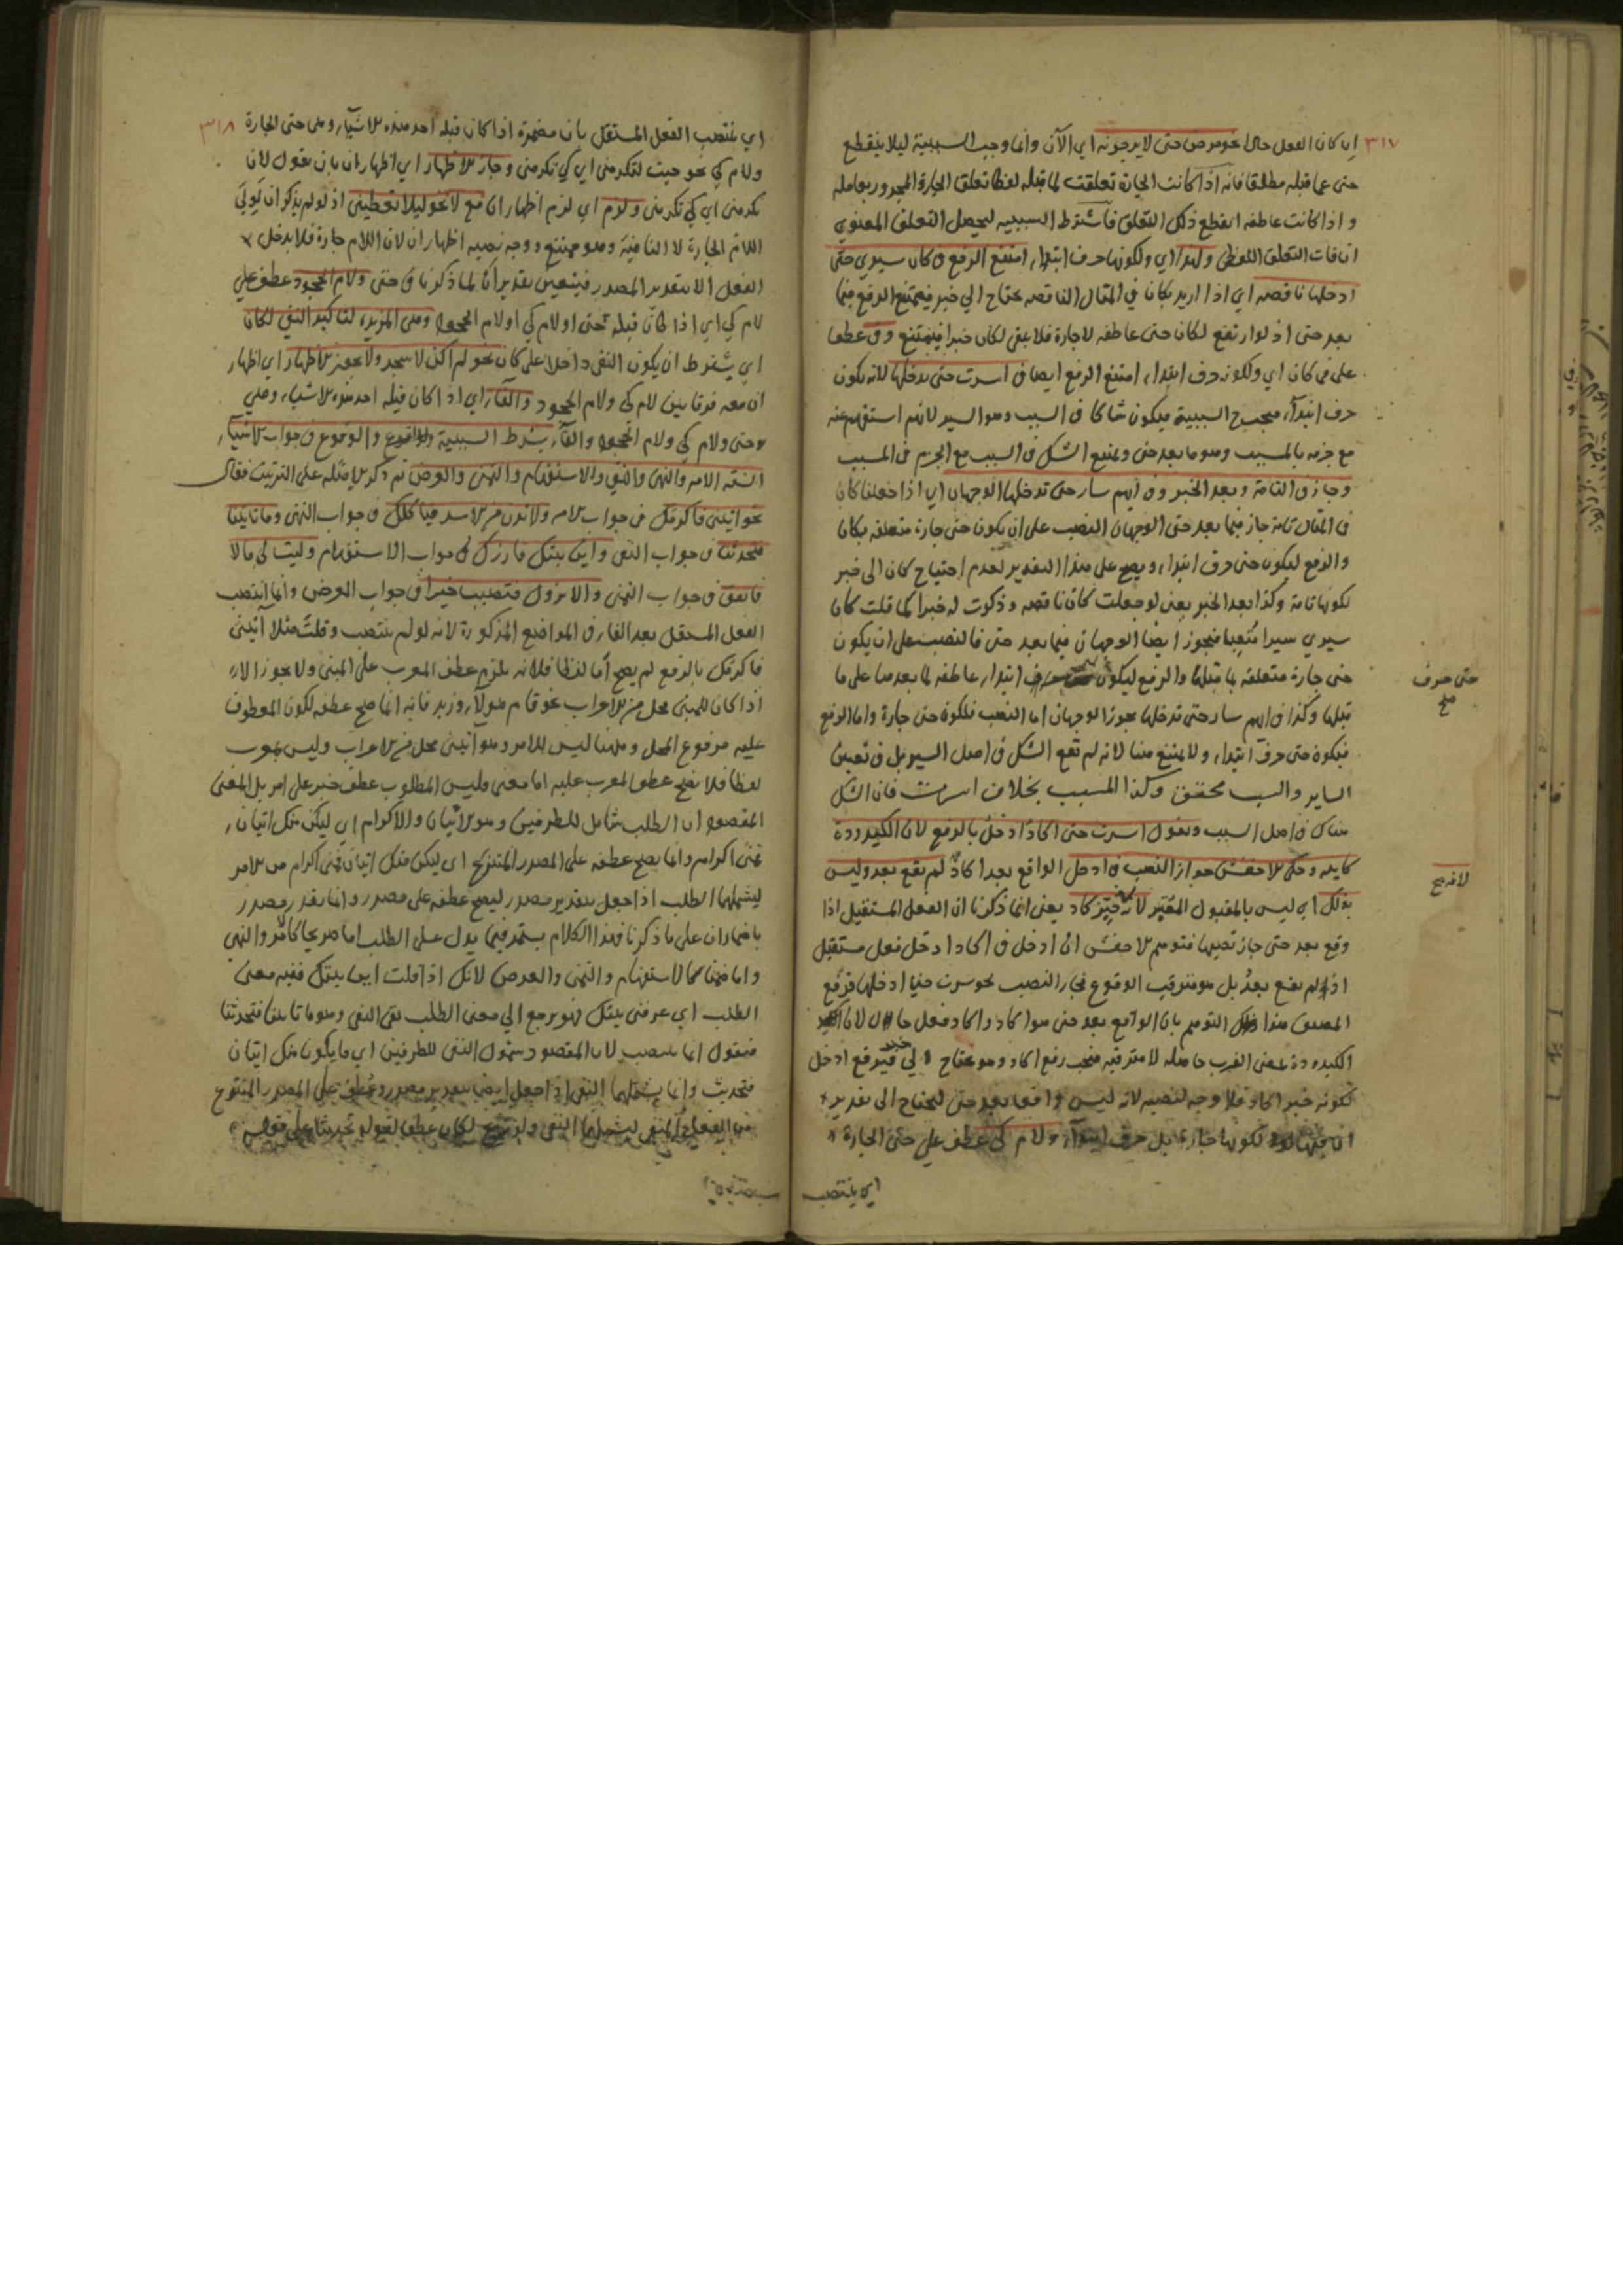 ٣١٧
ان كان الفعل حالا نحو مرض حتى لا يرجونه اي الآن وانما وجب السببية ليلا ينقطع
حتى عما قبله مطلقا فانه اذا كانت الجارة تعلقت لما قبله لفظا تعلق الجارة المجرور بعامله
و اذا كانت عاطفه انقطع ذلك التعلق فاشترط السببيه ليحصل التعلق المعنوي
ان فات التعلق اللفظى ولهذا اي ولكونها حرف ابتداء امتنع الرفع فى كان سيري حتى
ادخلها ناقصه اي اذا اريد بكان في المثال الناقصه يحتاج الي خبر فيمتنع الرفع فيما
بعد حتى اذ لو ارتفع لكان حتى عاطفه لا جارة فلا يبقى لكان خبرا فيمتنع وفى عطف
على فى كان اي ولكونه حرف ابتداء امتنع الرفع ايضا فى اسرت حتى تدخلها لانه يكون
حرف ابتداء فيجب السببية فيكون شاكا فى السبب وهو السير لانهم استفهم عنه
مع جزمه بالمسبب وهو ما بعد حتى ويمتنع الشك فى السبب مع الجزم فى المسبب
وجاز فى التامة وبعد الخبر وفى ايهم سار حتى تدخلها الوجهان اي اذا جعلنا كان
فى المثال تامة جاز فيما بعد حتى الوجهان النصب على ان يكون حتى جارة متعلقه بكان
والرفع ليكون حتى حرف ابتداء ويصح على هذا التقدير لعدم احتياج كان الى خبر
لكونها تامة وكذا بعد الخبر يعنى لو جعلت كان ناقصه وذكرت له خبرا كما قلت كان
سيري سيرا متعبا فيجوز ايضا الوجهان فيما بعد حتى فالنصب على ان يكون
حتى جارة متعلقه بما قبلها والرفع ليكون ابتداء عاطفه لما بعدها على ما
قبلها وكذا فى ايهم سار حتى تدخلها يجوز الوجهان اما النصب فلكون حتى جارة واما الرفع
فيكون حتى حرف ابتداء ولا يمتنع هنا لانه لم تقع الشك فى اصل السير بل فى تعيين
الساير والسبب محقق وكذا المسبب بخلاف اسرت فان الشك
هناك فى اصل السبب ونقول اسرت حتى اكاد ادخل بالرفع لان الكيدودة
كاينه وحكى الاخفش جواز النصب فى ادخل الواقع بعد اكاد لم تقع بعد وليس
بذلك اي ليس بالمقبول المعتبر لانه خبر كاد يعنى انما ذكرنا ان الفعل المستقبل اذا
وقع بعد حتى جاز نصبها فتوهم الاخفش ان ادخل فى اكاد ادخل فعل مستقبل
اذ لم تقع بعد بل هو مترقب الوقوع فجاز النصب نحو سرت حتى ادخلها فرفع
المصنف هذا التوهم بان الواقع بعد حتى هو اكاد واكاد فعل حال لان
الكيدودة بمعنى القرب حاصله لا مترقبه فيجب رفع اكاد وهو محتاج الي خبر فيرفع ادخل
لكونه خبر اكاد فلا وجه لنصبه لانه ليس واقعا بعد حتى ليحتاج الى تقدير
ان لكونها جارة بل حرف ابتداء ولام كى عطف على حتى الجارة
اي ينتصب
حتى حرف
صح
٣١٨
اي ينتصب الفعل المستقبل بان مضمرة اذا كان قبله احد هذه الاشياء وهى حتى الجارة
ولام كي نحو جيت لتكرمنى اي كي تكرمنى وجاز الاظهار اي اظهار ان بان تقول لان
تكرمنى اي كي تكرمنى ولزم اي لزم اظهار ان مع لا نحو ليلا تعطينى اذ لو لم يذكر ان
اللام الجارة لا النافية وهو ممتنع ووجه نصبه اظهار ان لان اللام جارة فلا يدخل
الفعل الا بتقدير المصدر فيتعين تقدير ان لما ذكرنا فى حتى ولام الجحود عطف على
لام كي اي اذا كان قبله حتى او لام كي او لام الجحود وهى المزيدة لتاكيد النفى لكان
اي يشترط ان يكون النفى داخلا على كان نحو لم اكن لاسجد ولا يجوز الاظهار اي اظهار
ان معه فرقا بين لام كى ولام الجحود والفاء اي اذا كان قبله احد هذه الاشياء وهي
حتى ولام كي ولام الجحود والفاء بشرط السببية والوقوع فى جواب الاشياء
الستة الامر والنهى والنفى والاستفهام والتمنى والعرض ثم ذكر الامثله على الترتيب فقال
نحو ايتنى فاكرمك فى جواب الامر ولا تدن من الاسد فياكلك فى جواب النهى وما تاتينا
فتحدثنا فى جواب النفى واين بيتك فازرك فى جواب الاستفهام وليت لى مالا
فانفق فى جواب التمنى والا تنزل فتصيب خيرا فى جواب العرض وانما انتصب
الفعل المستقبل بعد الفاء فى المواضع المذكورة لانه لو لم ينتصب وقلت مثلا ايتنى
فاكرمك بالرفع لم يصح اما لفظا فلانه يلزم عطف المعرب على المبنى ولا يجوز الا
اذا كان للمبنى محل من الاعراب نحو قام هولاء وزيد فانه انما صح عطفه لكون المعطوف
عليه مرفوع المحل وههنا ليس للامر وهو ايتنى محل من الاعراب وليس بمعرب
لفظا فلا يصح عطف المعرب عليه اما معنى فليس المطلوب عطف خبر على امر بل المعنى
المقصود ان الطلب شامل للطرفين وهو الاتيان والاكرام اي ليكن منك اتيان
فمنى اكرام وانما يصح عطفه على المصدر المنتزع اي ليكن منك اتيان فمنى اكرام من الامر
ليشملهما الطلب اذا جعل بتقدير مصدر ليصح عطفه على مصدر وانما يقدر مصدر
باضمار ان على ما ذكرنا فهذا الكلام يستمر فيما يدل على الطلب اما صريحا كالامر والنهى
واما ضمنا كالاستفهام والتمنى والعرض لانك اذا قلت اين بيتك ففيه معنى
الطلب اي عرفنى بيتك فهو يرجع الي معنى الطلب بقى النفى وهو ما تاتينا فتحدثنا
فنقول انما ينتصب لان المقصود شمول النفى للطرفين اي ما يكون منك اتيان
فتحديث وانما يشملهما النفى اذا جعل ايضا بتقدير مصدر وعطف على المصدر المنتزع
من الفعل المنفى ليشملهما النفى